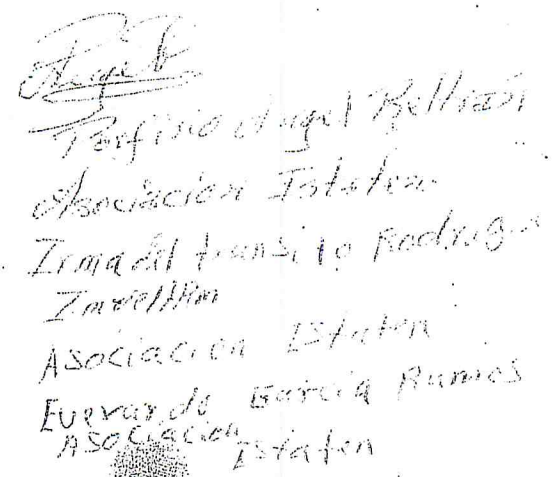 Angel
Porfirio Angel Beltrán
Asociacion Istaten
Irma del transito Rodrig
Asociacion Istaten
Everardo Garcia Ramos
Asociacion
Istaten